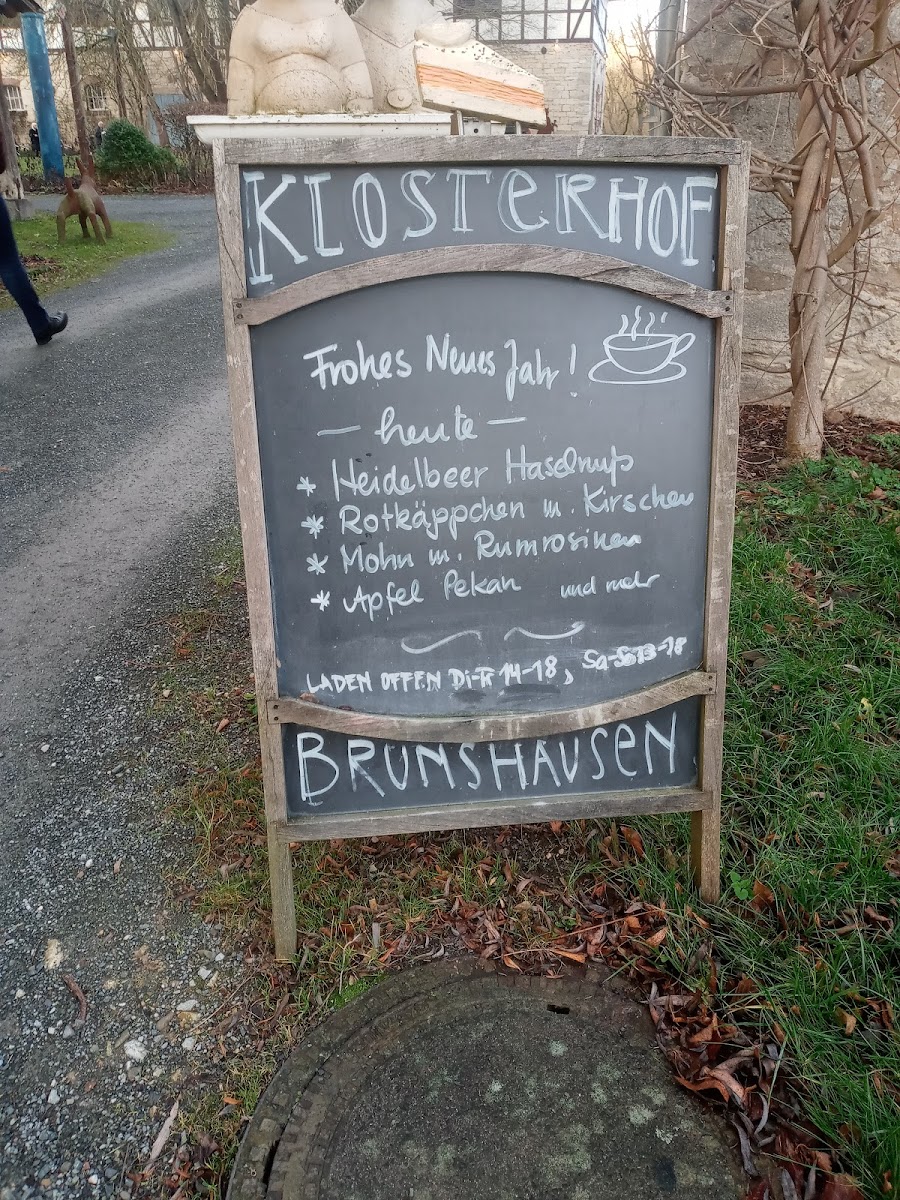 KLOSTERHOF
Frohes Neues Jahr!
– heute –
* Heidelbeer Haselnuß
* Rotkäppchen m. Kirschen
* Mohn m. Rumrosinen
* Apfel Pekan und mehr
LADEN OFFEN Di-Fr 14-18, Sa-So 13-18
BRUNSHAUSEN